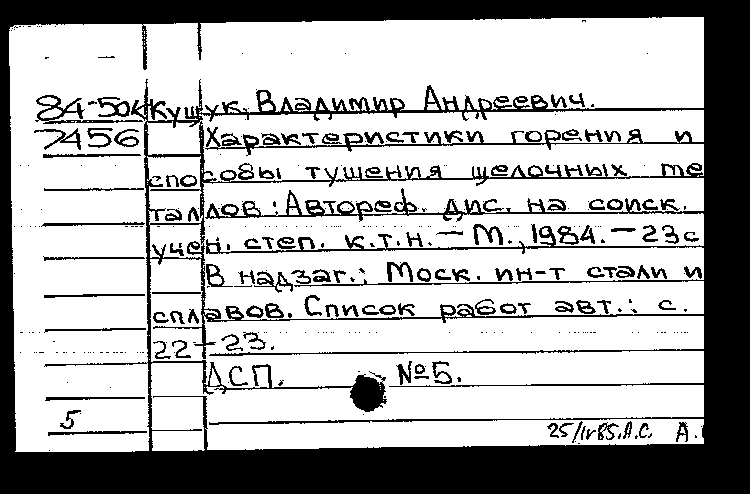 84-50к Кущук, Владимир Андреевич.
7456 Характеристики горения и
способы тушения щелочных ме
таллов : Автореф. дис. на соиск.
учен. степ. к.т.н. — М., 1984. — 23с
В надзаг.: Моск. ин-т стали и
сплавов. Список работ авт.: с.
22-23.
ДСП. №5.
5
25/IV85.А.С. А.